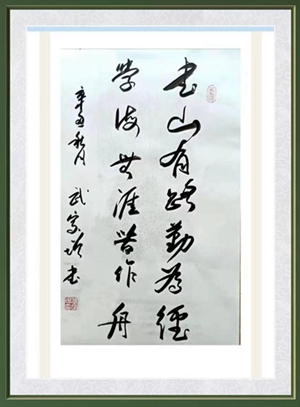 书山有路勤為徑
学海無涯苦作舟
辛丑秋月 武家 书